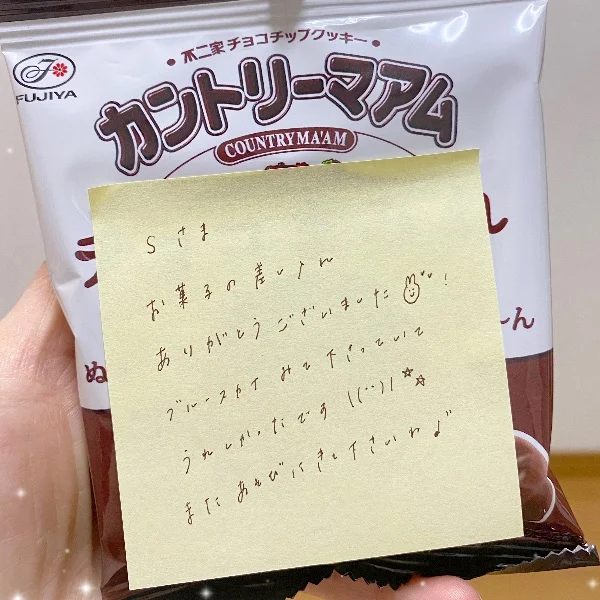 不二家チョコチップクッキー
FUJIYA
カントリーマアム
COUNTRY MA'AM
Sさま
お菓子の差し入れ
ありがとうございました!
ブルースカイみて下さっていて
うれしかったです \(¨)/☆☆
またあそびにきて下さいね♪